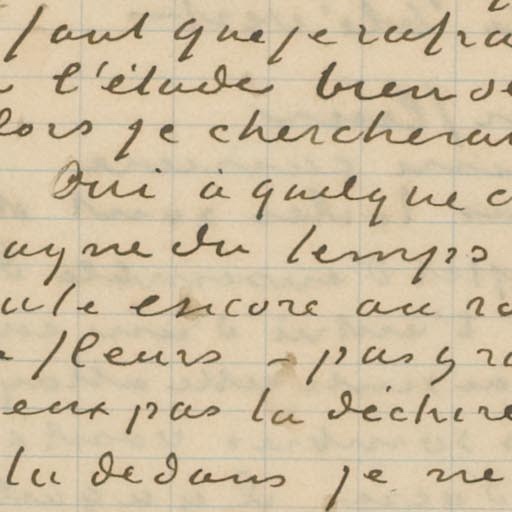 faut que je rafra
l'étude bien de
lors je chercherai
Oui à quelque c
agne du temps
ute encore au ra
fleurs - pas gra
eux pas la déchire
lu dedans je ne